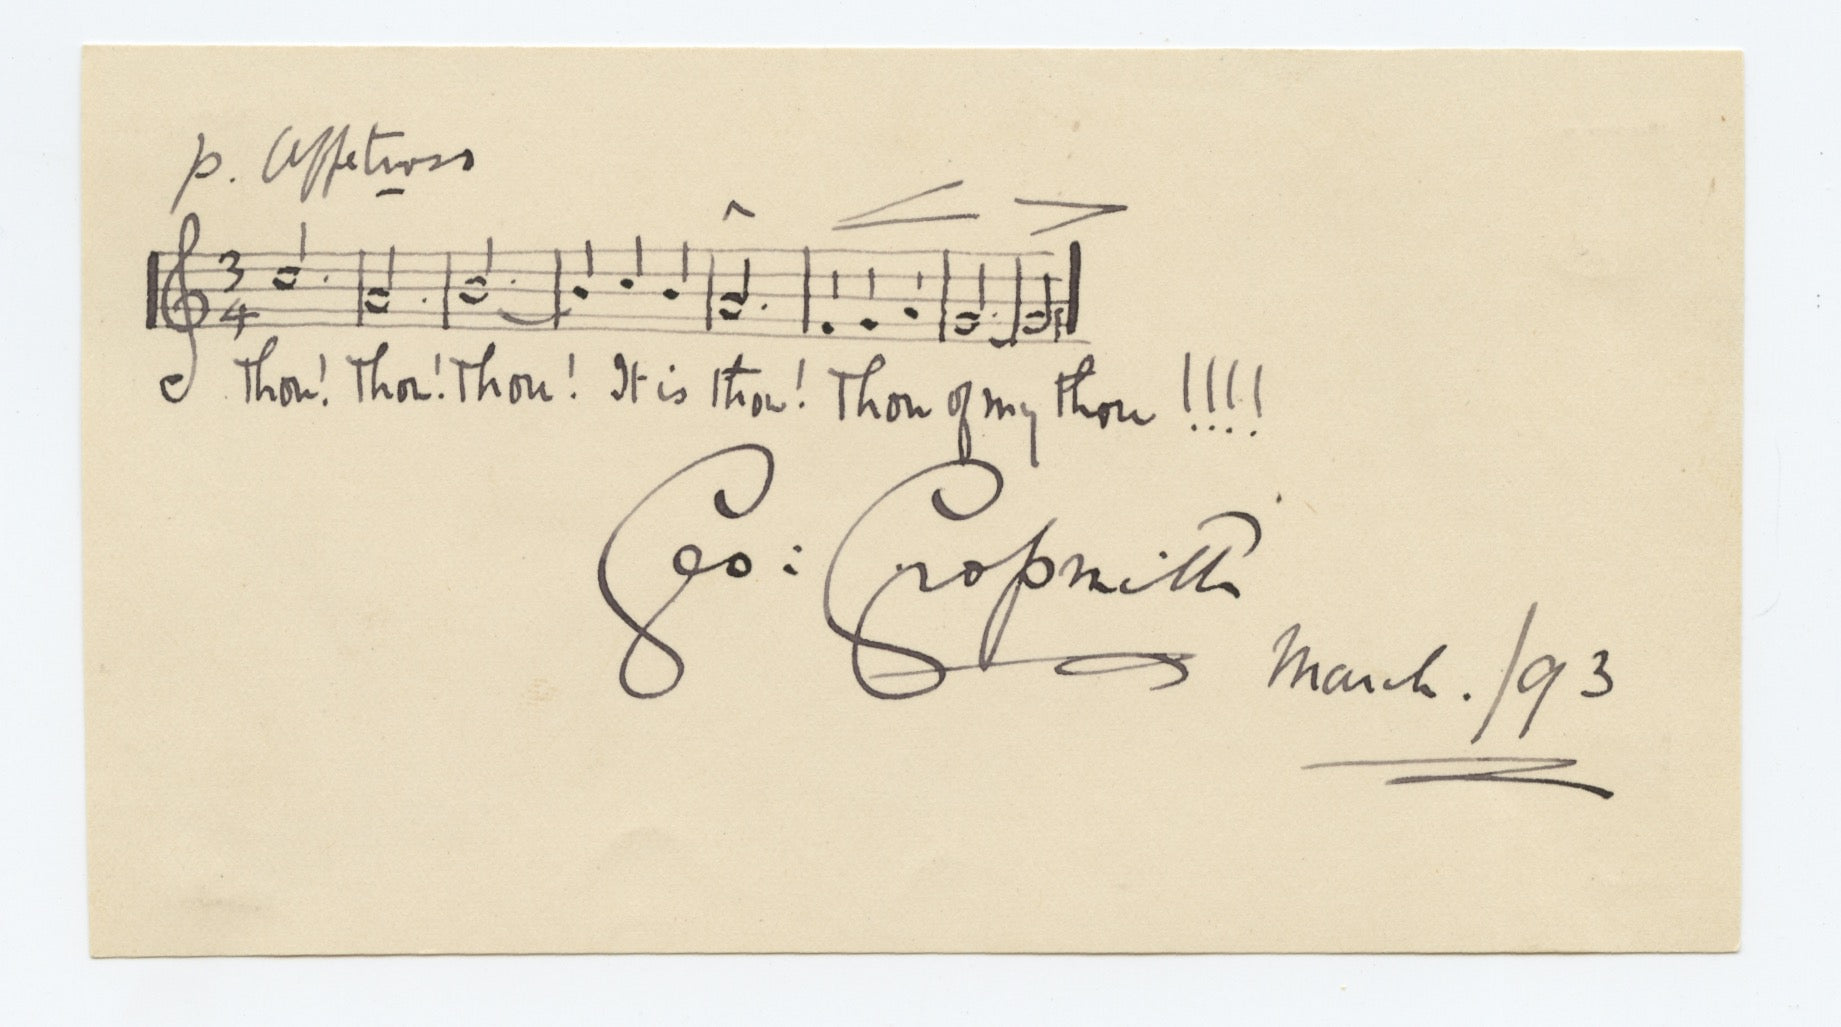 p. Affetuoso
3
4
Thou! Thou! Thou! It is thou! Thou of my thou !!!!
Geo: Grossmith
March. /93